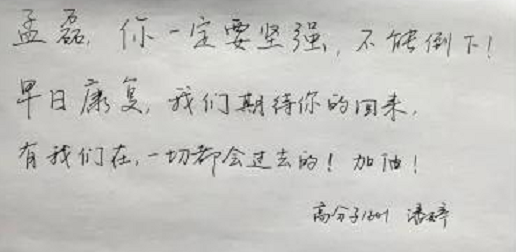 孟磊,你一定要坚强,不能倒下!
早日康复,我们期待你的回来,
有我们在,一切都会过去的!加油!
高分子1341 潘